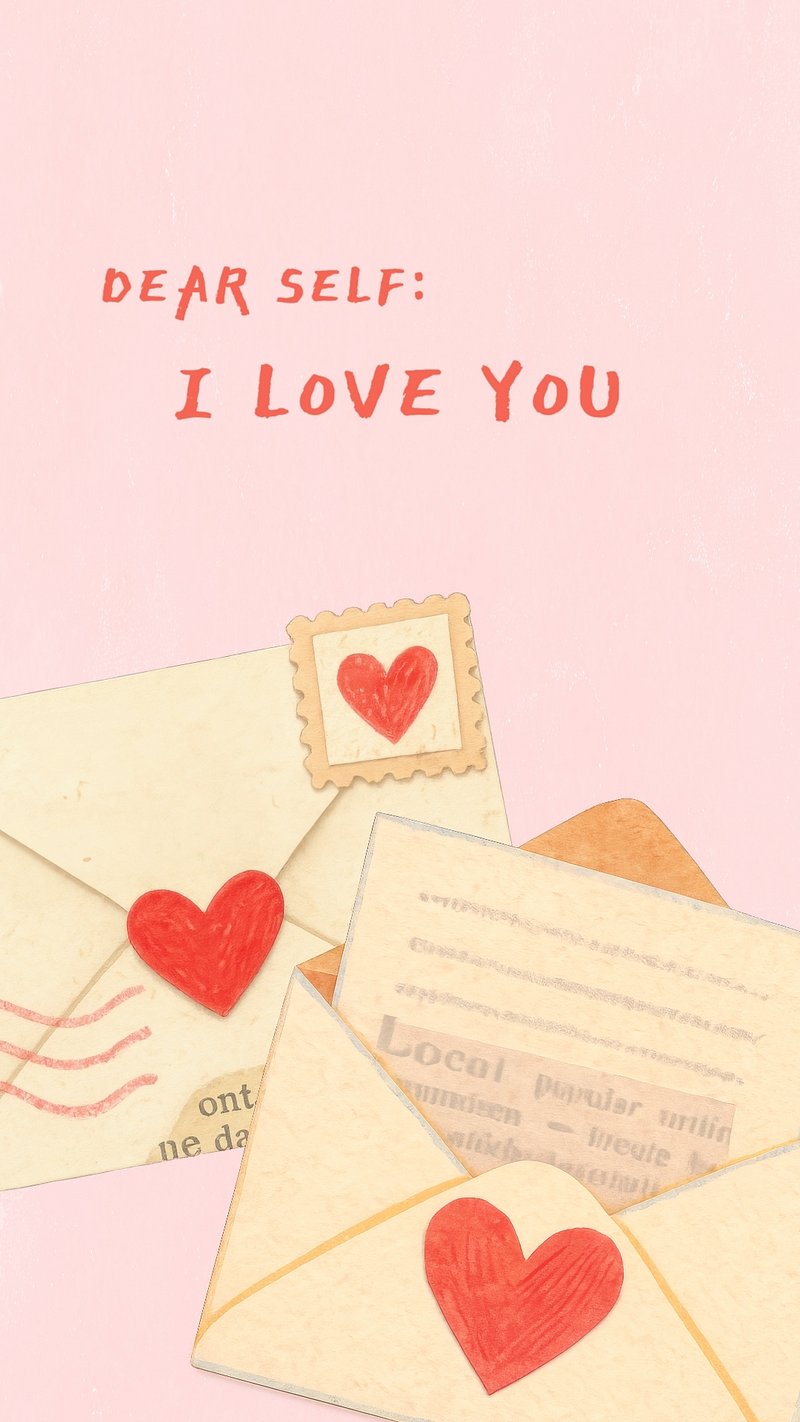 DEAR SELF:
I LOVE YOU
ont
ne da
Local